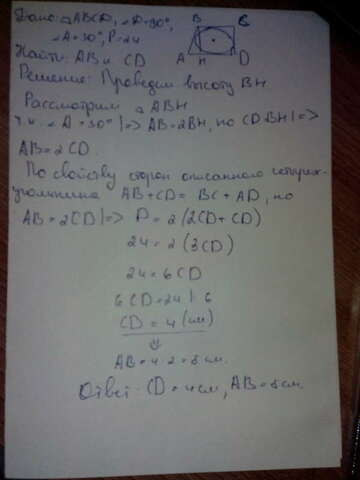 Дано: ABCD, ∠D=90°,
∠A=30°, P=24
Найти: AB и CD
B C
A H D
Решение: Проведем высоту BH
Рассмотрим △ABH
т.к. ∠A=30° |=> AB=2BH, но CD=BH |=>
AB=2CD.
По свойству сторон описанного четырех-
угольника AB+CD=BC+AD, но
AB=2CD |=> P=2(2CD+CD)
24=2(3CD)
24=6CD
6CD=24 |:6
CD=4(см)
AB=4·2=8см.
Ответ: CD=4см, AB=8см